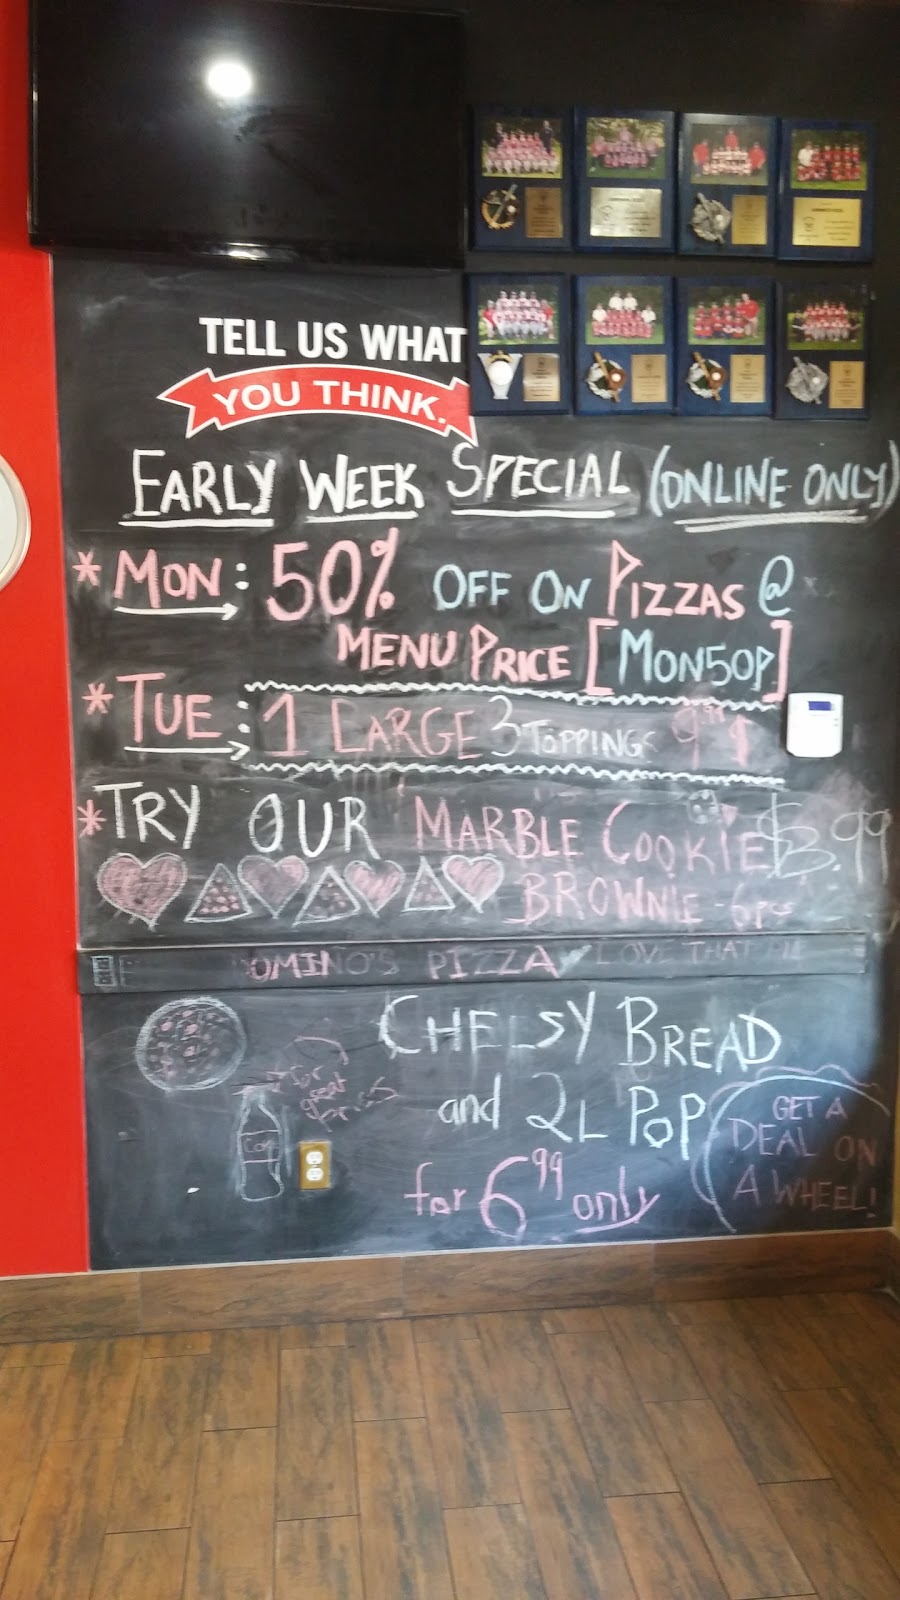 TELL US WHAT
YOU THINK.
EARLY WEEK SPECIAL (ONLINE ONLY)
* MON: 50% OFF ON PIZZAS @
MENU PRICE [MON50P]
* TUE: 1 LARGE 3 TOPPINGS 9.99
* TRY OUR MARBLE COOKIE $3.99
BROWNIE - 6pcs
OMINO'S PIZZA LOVE THAT
CHEESY BREAD
and 2L POP
for 6.99 only
for
great
GET A
DEAL ON
A WHEEL!